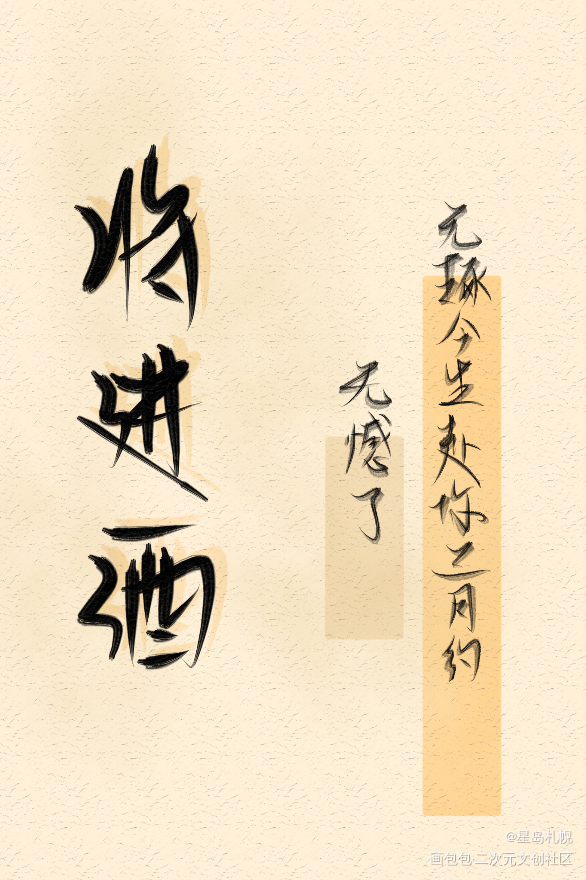 元琢今生赴你三月约
无憾了
将进酒
@星岛札幌
画包包·二次元文创社区